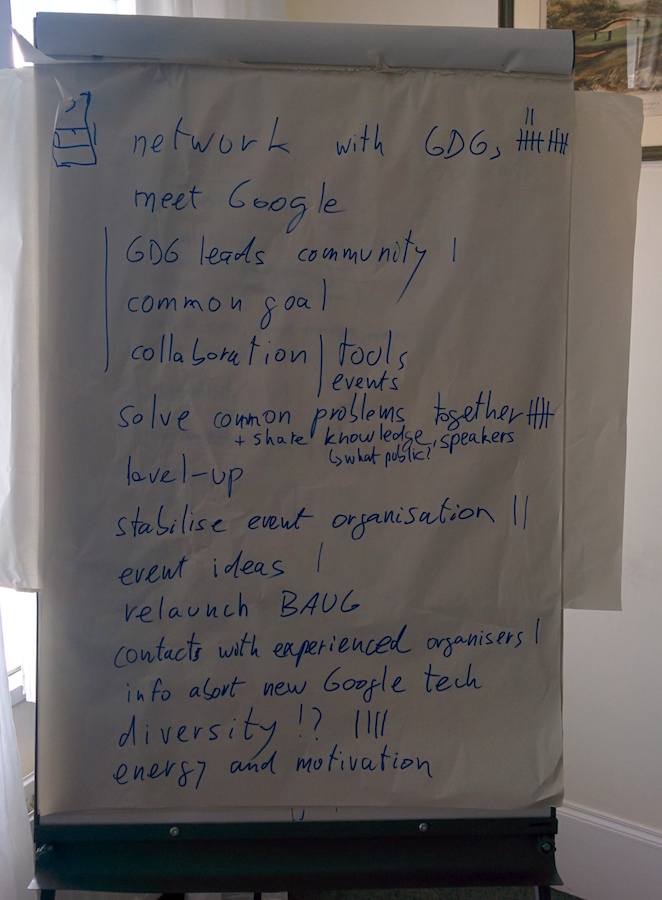 network with GDG, 卌 卌 ||
meet Google
GDG leads community |
common goal
collaboration | tools
events
solve common problems together 卌
+ share knowledge, speakers
↳ what public?
level-up
stabilise event organisation ||
event ideas |
relaunch BAUG
contacts with experienced organisers |
info abort new Google tech
diversity !? ||||
energy and motivation